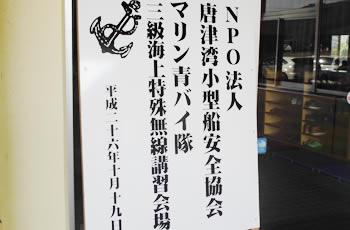 NPO法人
唐津湾小型船安全協会
マリン青バイ隊
三級海上特殊無線講習会場
平成二十六年十月十九日